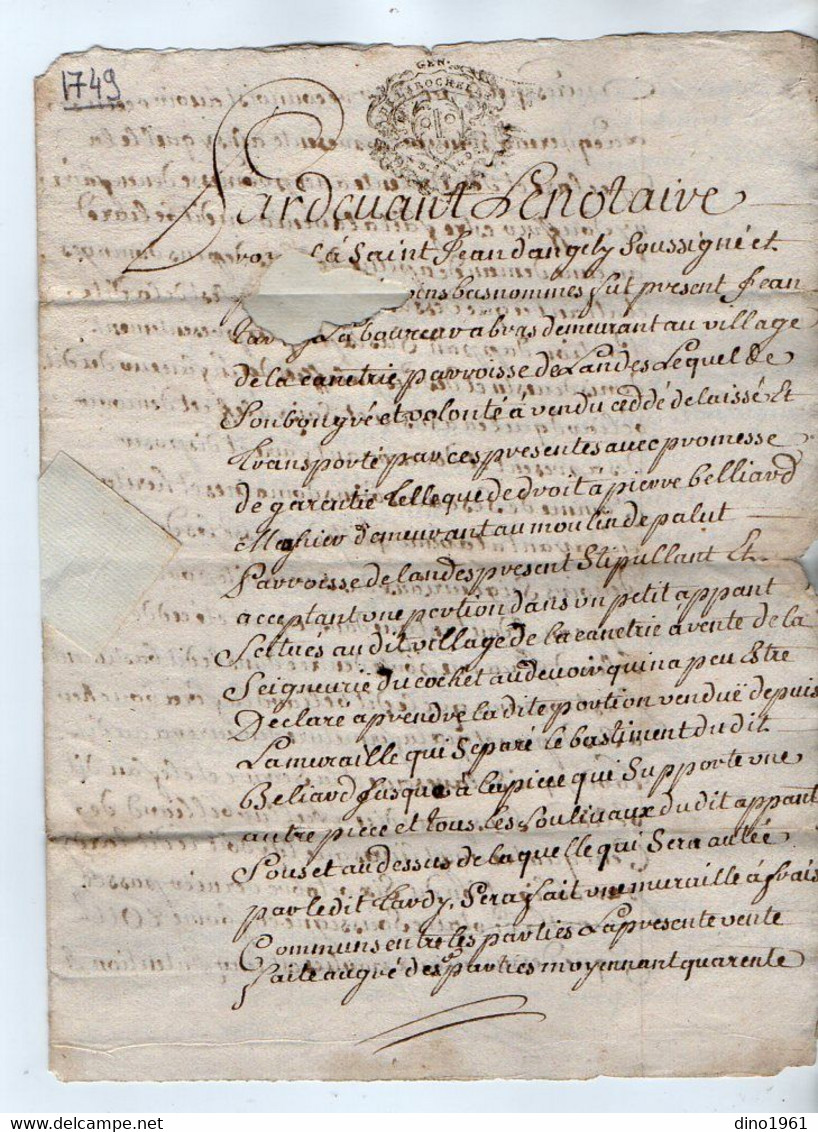 1749
GEN. DE LAROCHELLE
Pardevant Lenotaire
à Saint Jean dangely Soussigné et
basnommés fut present Jean
Laboureur a bras demeurant au village
de la canetrie parroisse de Landes Lequel de
son bon gré et volonté à vendu ceddé delaissé Et
transporté par ces presentes avec promesse
de garentie telle que de droit a pierre belliard
demeurant au moulin de palut
Parroisse de landes present stipullant Et
acceptant une portion dans un petit appant
scitués audit village de la canetrie à vente de la
Seigneurie du cochet au devoir qui na peu Estre
Declaré a prendre la dite portion venduë depuis
La muraille qui Separe le bastiment du dit
Beliard jusques à la piece qui Supporte une
autre piece et tous les soulivaux du dit appant
Sous et au dessus de laquelle qui Sera autée
par ledit tardy, Sera fait une muraille à frais
Communs entre les parties La presente vente
faite au gré des parties moyennant quarente
dino1961